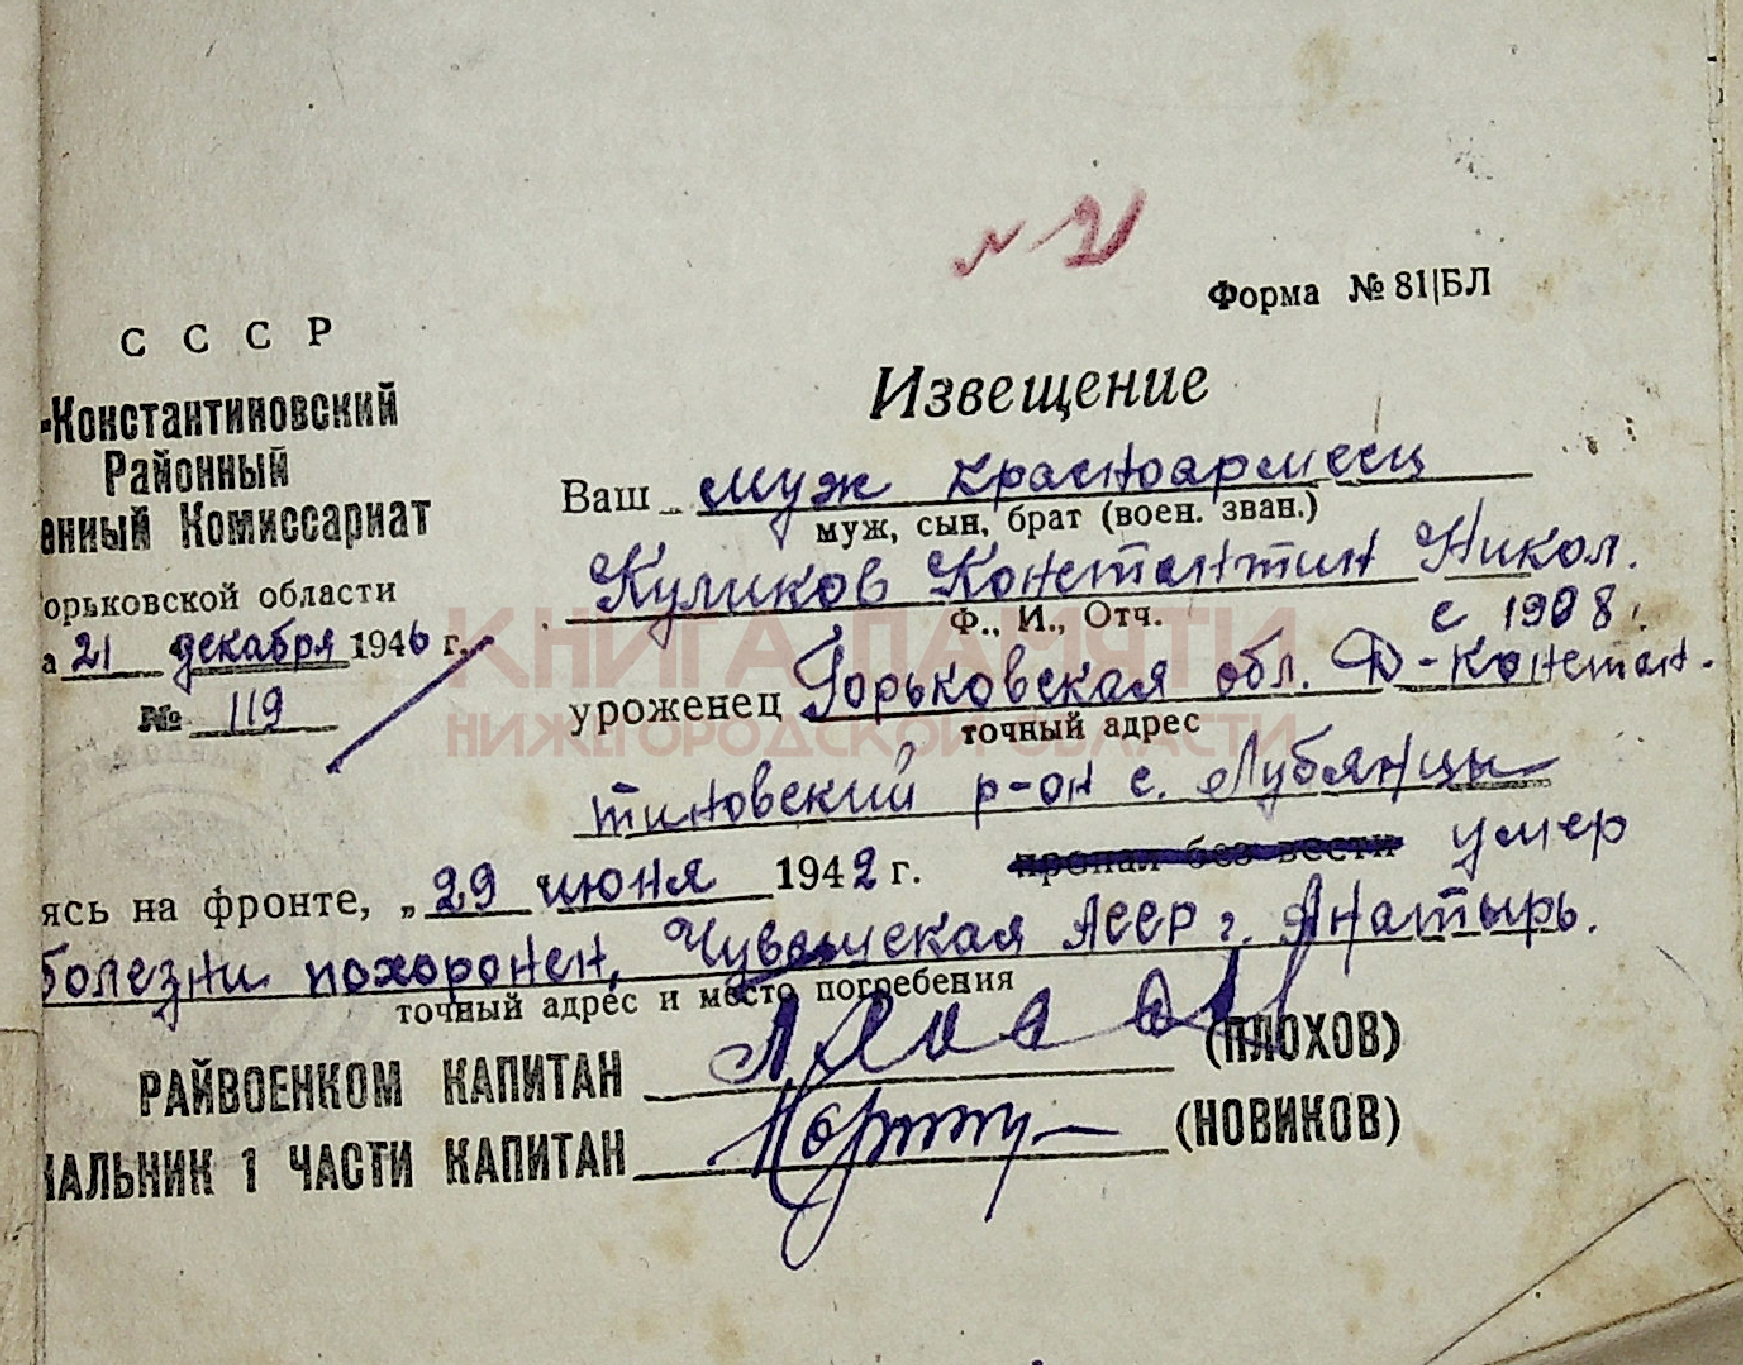 № 21
Форма № 81|БЛ
С С С Р
-Константиновский
Районный
енный Комиссариат
орьковской области
а 21 декабря 1946 г.
№ 119
Извещение
Ваш муж красноармеец
муж, сын, брат (воен. зван.)
Куликов Константин Никол.
Ф., И., Отч.
с 1908.
уроженец Горьковская обл. Д-Констан-
точный адрес
тиновский р-он с. Лубянцы
ясь на фронте, „29 июня 1942 г. пропал без вести умер
болезни похоронен, Чувашская АССР г. Анатырь.
точный адрес и место погребения
РАЙВОЕНКОМ КАПИТАН (ПЛОХОВ)
ЧАЛЬНИК 1 ЧАСТИ КАПИТАН (НОВИКОВ)
КНИГА ПАМЯТИ
НИЖЕГОРОДСКОЙ ОБЛАСТИ